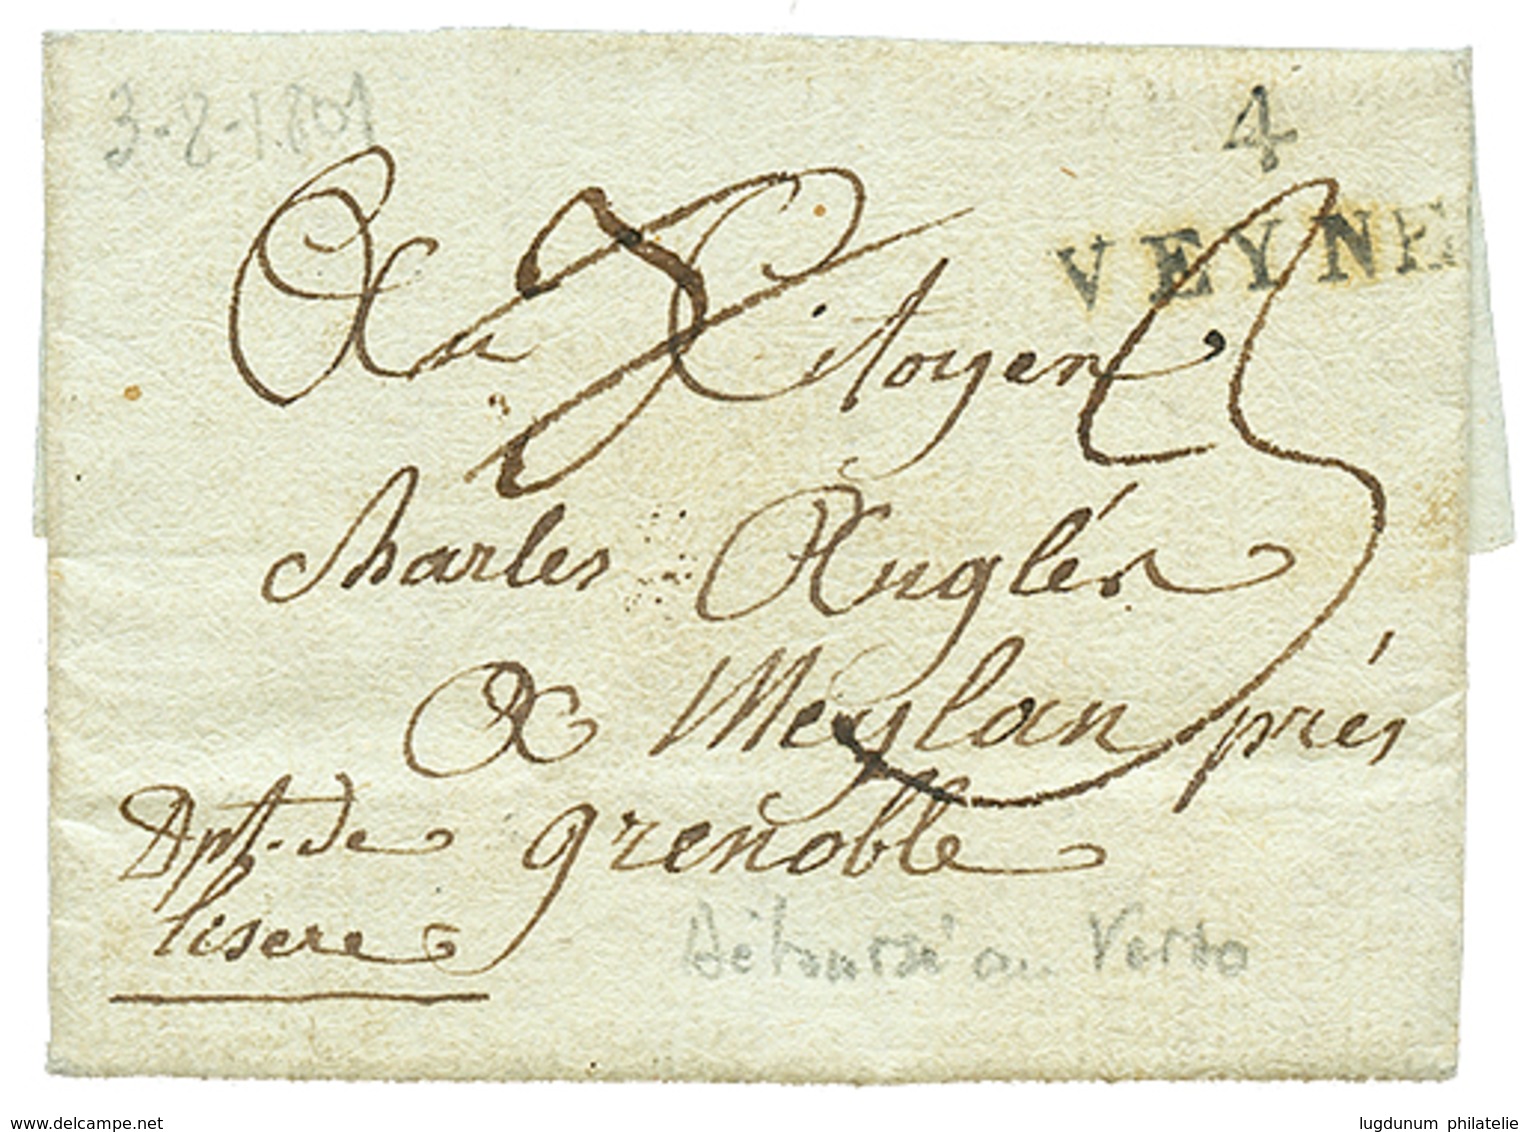 3-8-1801
4
VEYNE
Au Citoyen
Charles Anglès
A Meylan près
Dpt. de grenoble
lisere
Détaxé au Verso
delcampe.net
lugdunum philatelie